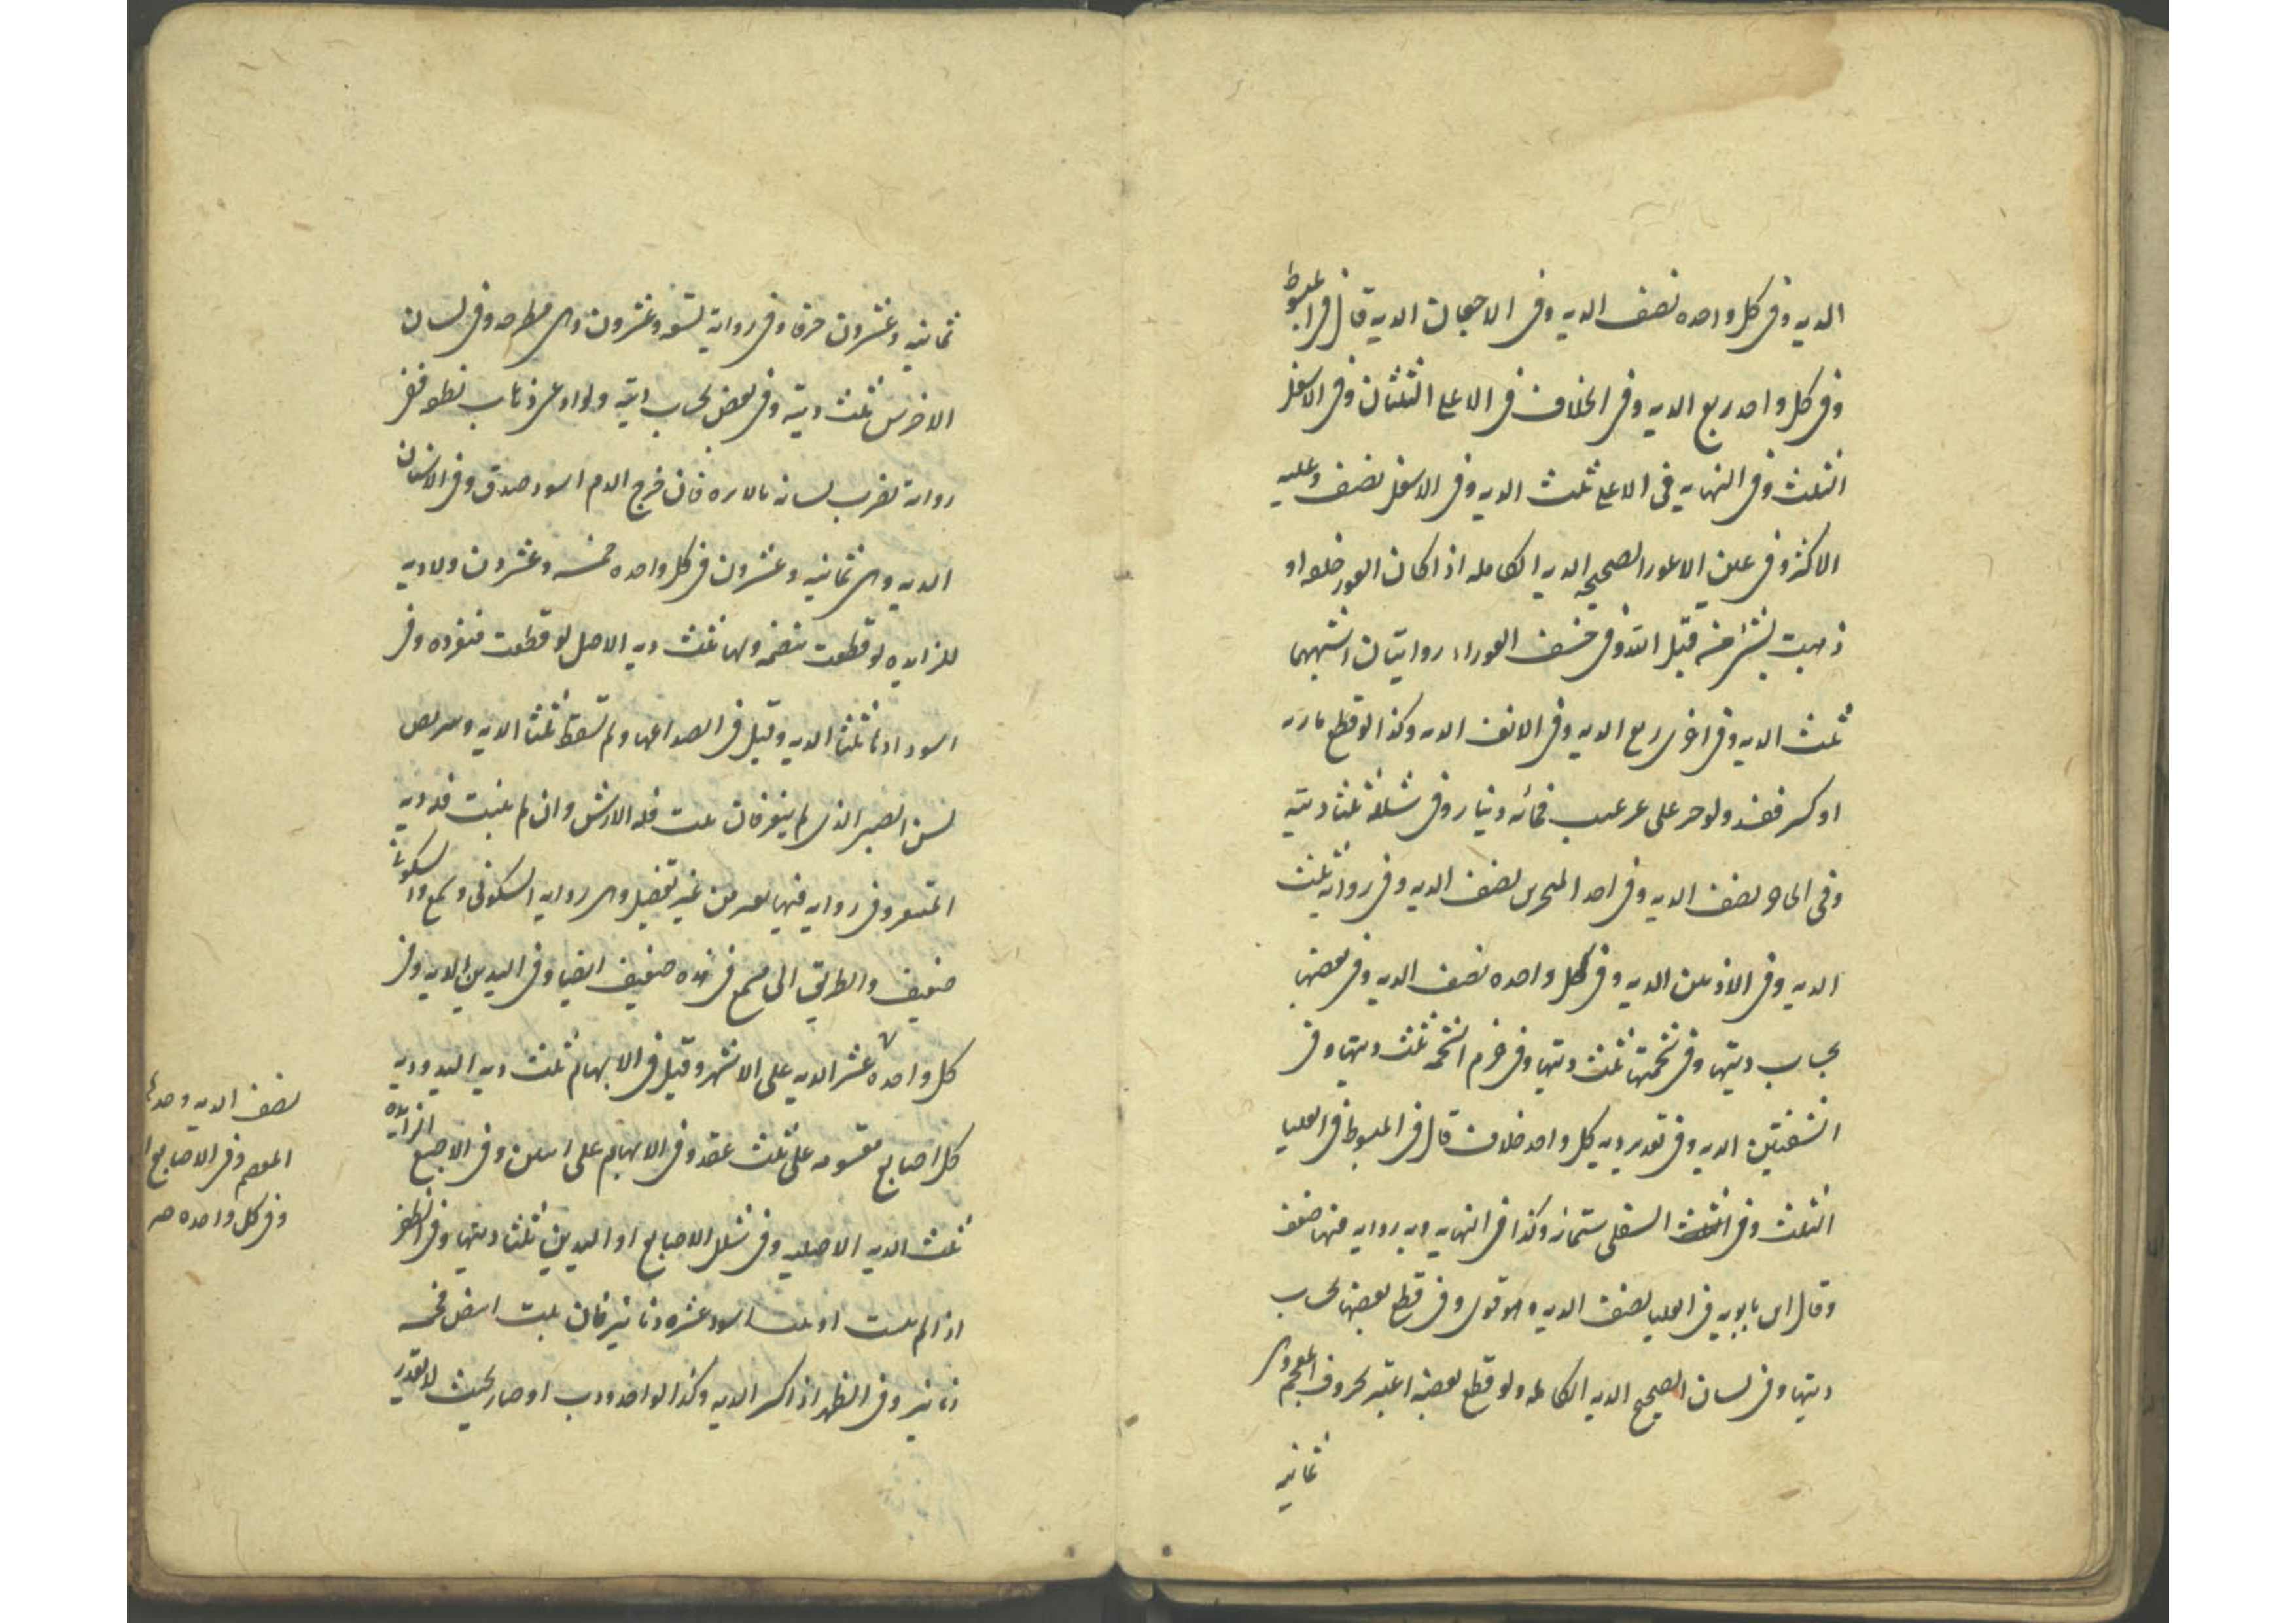 الديه وفى كل واحده نصف الديه وفى الاجفان الديه قال فى المبسوط
وفى كل واحد ربع الديه وفى الخلاف فى الاعلى الثلثان وفى الاسفل
الثلث وفى النهايه فى الاعلى ثلث الديه وفى الاسفل نصف وعليه
الاكثر وفى عين الاعور الصحيحه الديه الكامله اذا كان العور خلقه او
ذهبت بشئ من قبل الله وفى خسف العوراء روايتان اشبههما
ثلث الديه وفى اخرى ربع الديه وفى الانف الديه وكذا لو قطع مارنه
او كسر ففسد ولو جبر على غير عيب فمائه دينار وفى شلله ثلثا ديته
وفى الحاجز نصف الديه وفى احد المنخرين نصف الديه وفى روايه ثلث
الديه وفى الاذنين الديه وفى كل واحده نصف الديه وفى بعضها
بحساب ديتها وفى شحمتها ثلث ديتها وفى خرم الشحمه ثلث ديتها وفى
الشفتين الديه وفى تقدير ديه كل واحد خلاف قال فى المبسوط فى العليا
الثلث وفى السفلى ستمائه وكذا فى النهايه وبه روايه فيها ضعف
وقال ابن بابويه فى العليا نصف الديه وهو قوى وفى قطع بعضها بحساب
ديتها وفى لسان الصحيح الديه الكامله ولو قطع بعضه اعتبر بحروف المعجم وهى
ثمانيه
ثمانيه وعشرون حرفا وفى روايه تسعه وعشرون وهى مطرحه وفى لسان
الاخرس ثلث ديته وفى بعضه بحساب ديته ولو ادعى ذهاب نطقه ففى
روايه يضرب لسانه بالابره فان خرج الدم اسود صدق وفى الاسنان
الديه وهى ثمانيه وعشرون فى كل واحده خمسه وعشرون ولا ديه
للزايده لو قطعت منضمه ولها ثلث ديه الاصل لو قطعت منفرده وفى
اسودادها ثلثا الديه وقيل فى انصداعها ولم تسقط ثلثا الديه ويتربص
لسن الصبى الذى لم يثغر فان نبت فله الارش وان لم ينبت فله ديه
المثغر وفى روايه فيها بعير من غير تفصيل وهى روايه السكونى ومسمع والسكونى
ضعيف والطريق الى مسمع فى هذه ضعيف ايضا وفى اليدين الديه وفى
كل واحده عشر الديه على الاشهر وقيل فى الابهام ثلث ديه اليد وديه
كل اصابع مقسومه على ثلث عقد وفى الابهام على اثنين وفى الاصبع الزايده
ثلث الديه الاصليه وفى شلل الاصابع او اليدين ثلثا ديتها وفى الظفر
اذا لم ينبت او نبت اسود عشره دنانير فان نبت ابيض فخمسه
دنانير وفى الظهر اذا كسر الديه وكذا لو احدودب او صار بحيث لا يقدر
نصف الديه وحدها
المعصم وفى الاصابع
وفى كل واحده